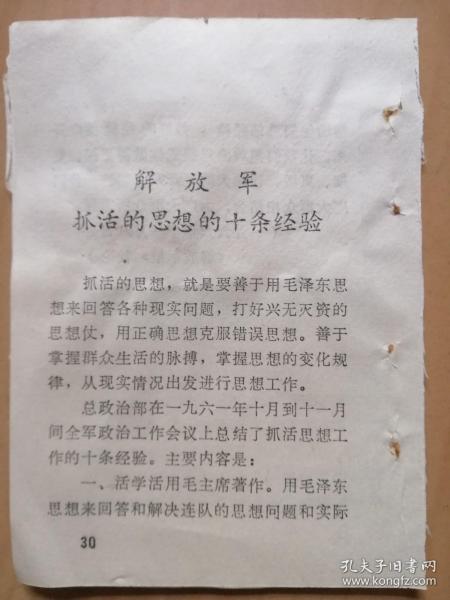 解放军
抓活的思想的十条经验
抓活的思想，就是要善于用毛泽东思
想来回答各种现实问题，打好兴无灭资的
思想仗，用正确思想克服错误思想。善于
掌握群众生活的脉搏，掌握思想的变化规
律，从现实情况出发进行思想工作。
总政治部在一九六一年十月到十一月
间全军政治工作会议上总结了抓活思想工
作的十条经验。主要内容是：
一、活学活用毛主席著作。用毛泽东
思想来回答和解决连队的思想问题和实际
30
孔夫子旧书网
www.kongfz.com